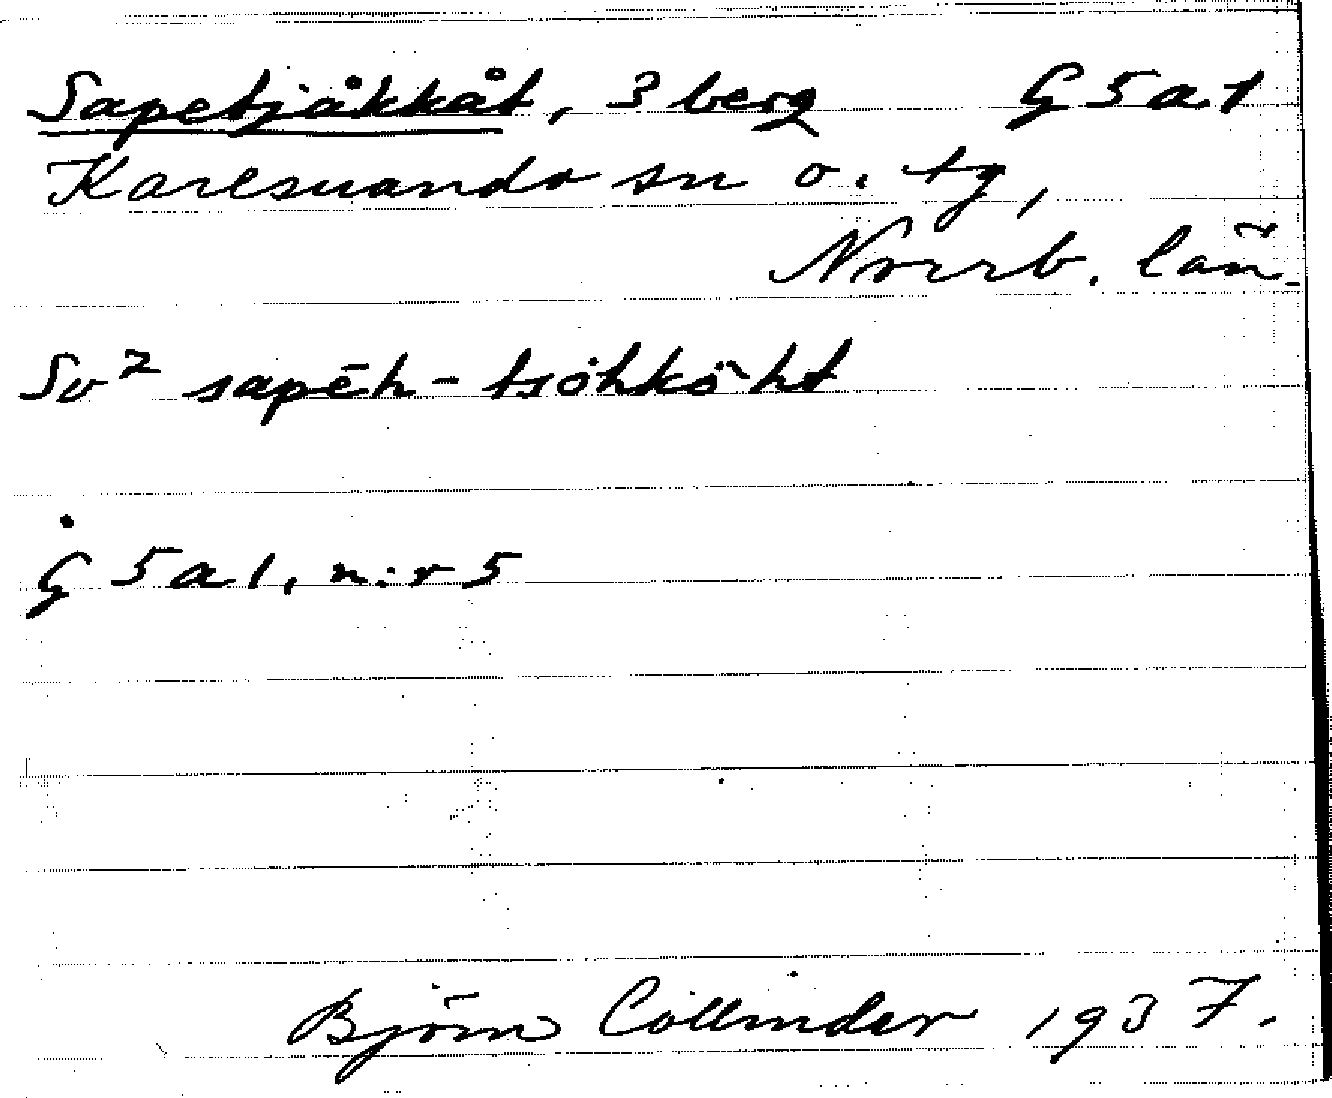 Sapetjåkkåt, 3 berg G 5 a 1
Karesuando sn o. tg,
Norrb. län.
Sv² sapēh-tsöhkȯ̀ht
G 5 a 1, n:r 5
Björn Collinder 1937.